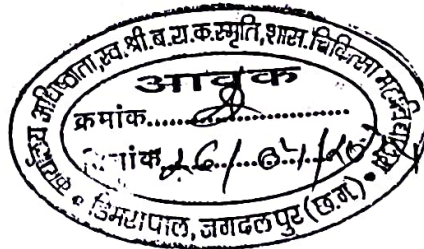 कार्यालय अधिष्ठाता, स्व. श्री. ब. रा. क. स्मृति, शास. चिकित्सा महाविद्यालय
आवक
क्रमांक..............................
दिनांक
डिमरापाल, जगदलपुर (छ.ग.)